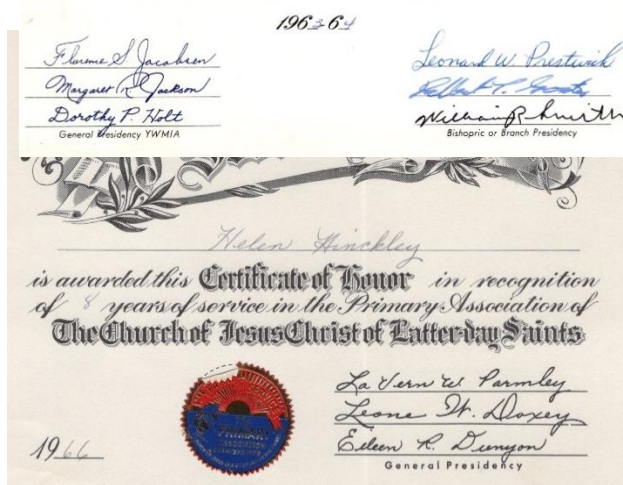 1963-64
Florence S. Jacobsen
Margaret R. Jackson
Dorothy P. Holt
General Presidency YWMIA
Leonard W. Prestwich
William R. Smith
Bishopric or Branch Presidency
Helen Hinckley
is awarded this Certificate of Honor in recognition
of 8 years of service in the Primary Association of
The Church of Jesus Christ of Latter-day Saints
PRIMARY
ASSOCIATION
1966
LaVern W. Parmley
Leone W. Doxey
Eileen R. Dunyon
General Presidency